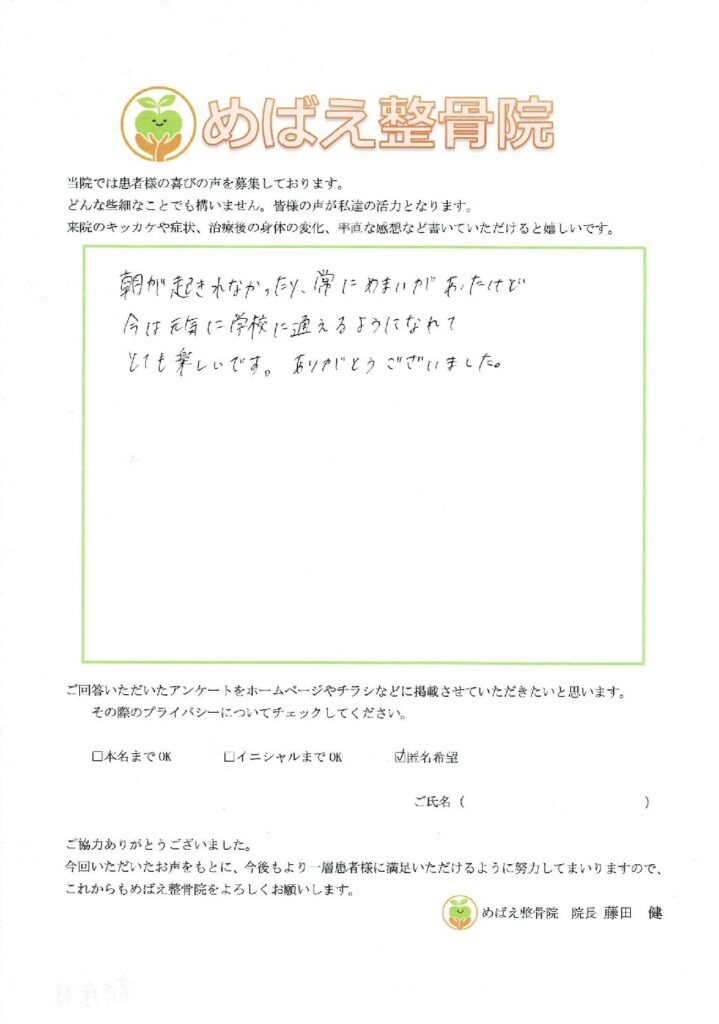 めばえ整骨院
当院では患者様の喜びの声を募集しております。
どんな些細なことでも構いません。皆様の声が私達の活力となります。
来院のキッカケや症状、治療後の身体の変化、率直な感想など書いていただけると嬉しいです。
朝が起きれなかったり、常にめまいがあったけど
今は元気に学校に通えるようになれて
とても楽しいです。ありがとうございました。
ご回答いただいたアンケートをホームページやチラシなどに掲載させていただきたいと思います。
その際のプライバシーについてチェックしてください。
□本名までOK □イニシャルまでOK ☑匿名希望
ご氏名( )
ご協力ありがとうございました。
今回いただいたお声をもとに、今後もより一層患者様に満足いただけるように努力してまいりますので、
これからもめばえ整骨院をよろしくお願いします。
めばえ整骨院 院長 藤田 健